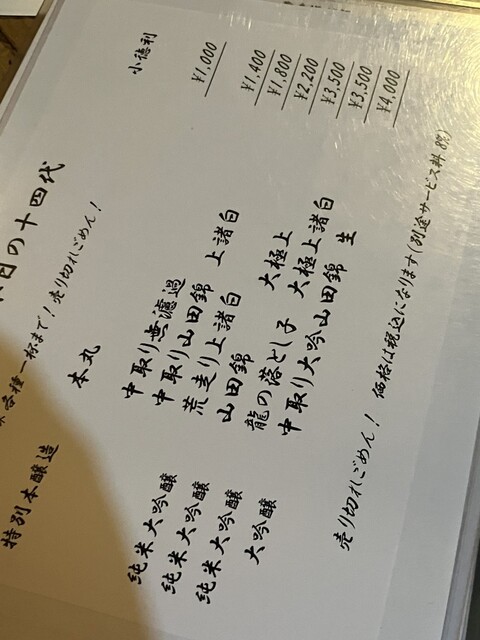 日の十四代
各種一杯まで!売り切れごめん!
小徳利
特別本醸造 本丸 ¥1,000
中取り無濾過 ¥1,400
中取り山田錦 上諸白 ¥1,800
純米大吟醸 荒走り上諸白 ¥2,200
純米大吟醸 山田錦 大極上 ¥3,500
純米大吟醸 龍の落とし子 大極上諸白 ¥3,500
大吟醸 中取り大吟山田錦 生 ¥4,000
売り切れごめん! 価格は税込になります(別途サービス料8%)